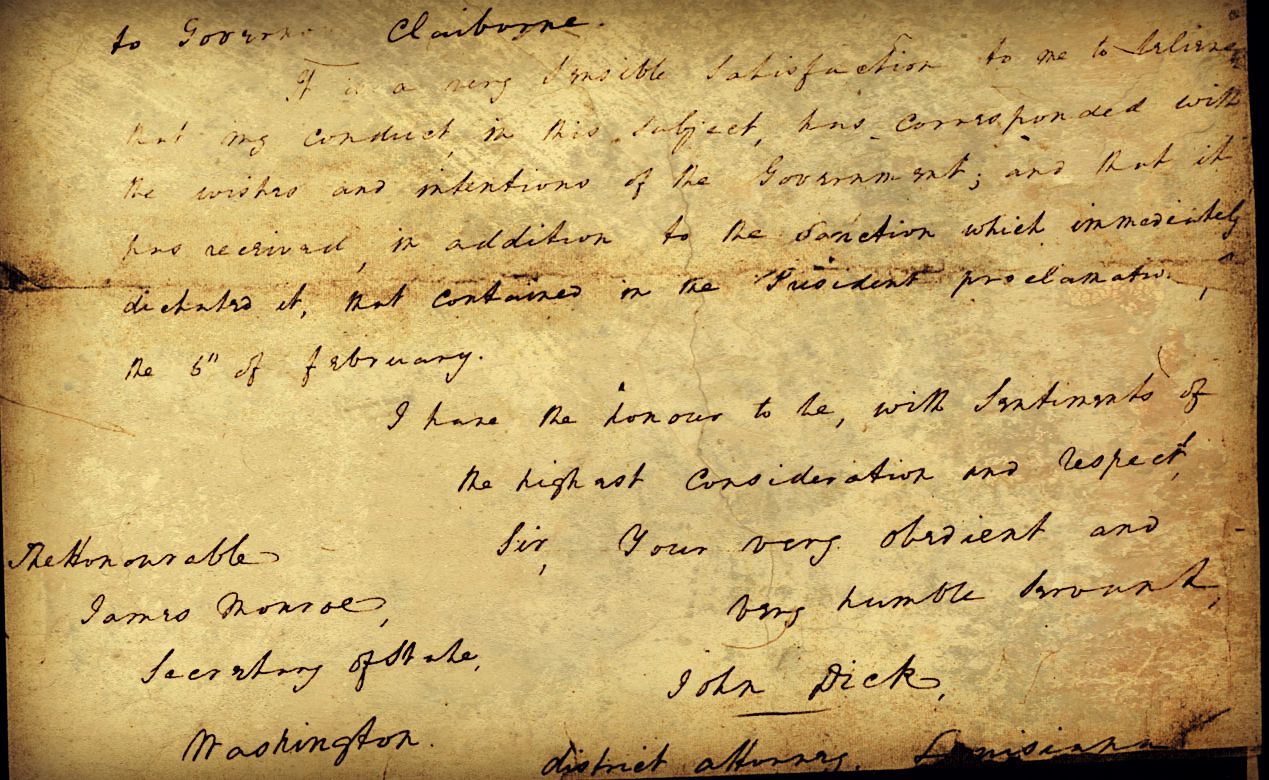 to Governor Claiborne.
It is a very sensible satisfaction to me to believe
that my conduct, in this subject, has corresponded with
the wishes and intentions of the Government; and that it
has received, in addition to the sanction which immediately
dictated it, that contained in the President proclamation,
the 6" of february.
I have the honour to be, with sentiments of
the highest consideration and respect,
Sir, Your very obedient and
very humble servant,
John Dick,
district attorney, Louisiana
The Honourable
James Monroe,
Secretary of State,
Washington.